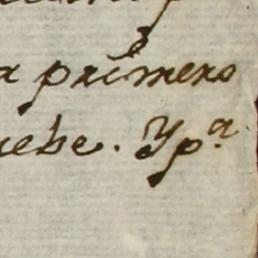 a primero
uebe. Yp.ª